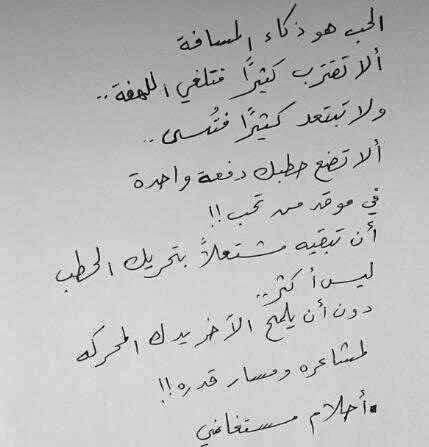 الحب هو ذكاء المسافة
ألا تقترب كثيرًا فتلغي اللهفة..
ولا تبتعد كثيرًا فتُنسى..
ألا تضع حطبك دفعة واحدة
في موقد من تحب!!
أن تبقيه مشتعلاً بتحريك الحطب
ليس أكثر..
دون أن يلمح الآخر يدك المحركه
لمشاعره ومسار قدره!!
•أحلام مستغانمي